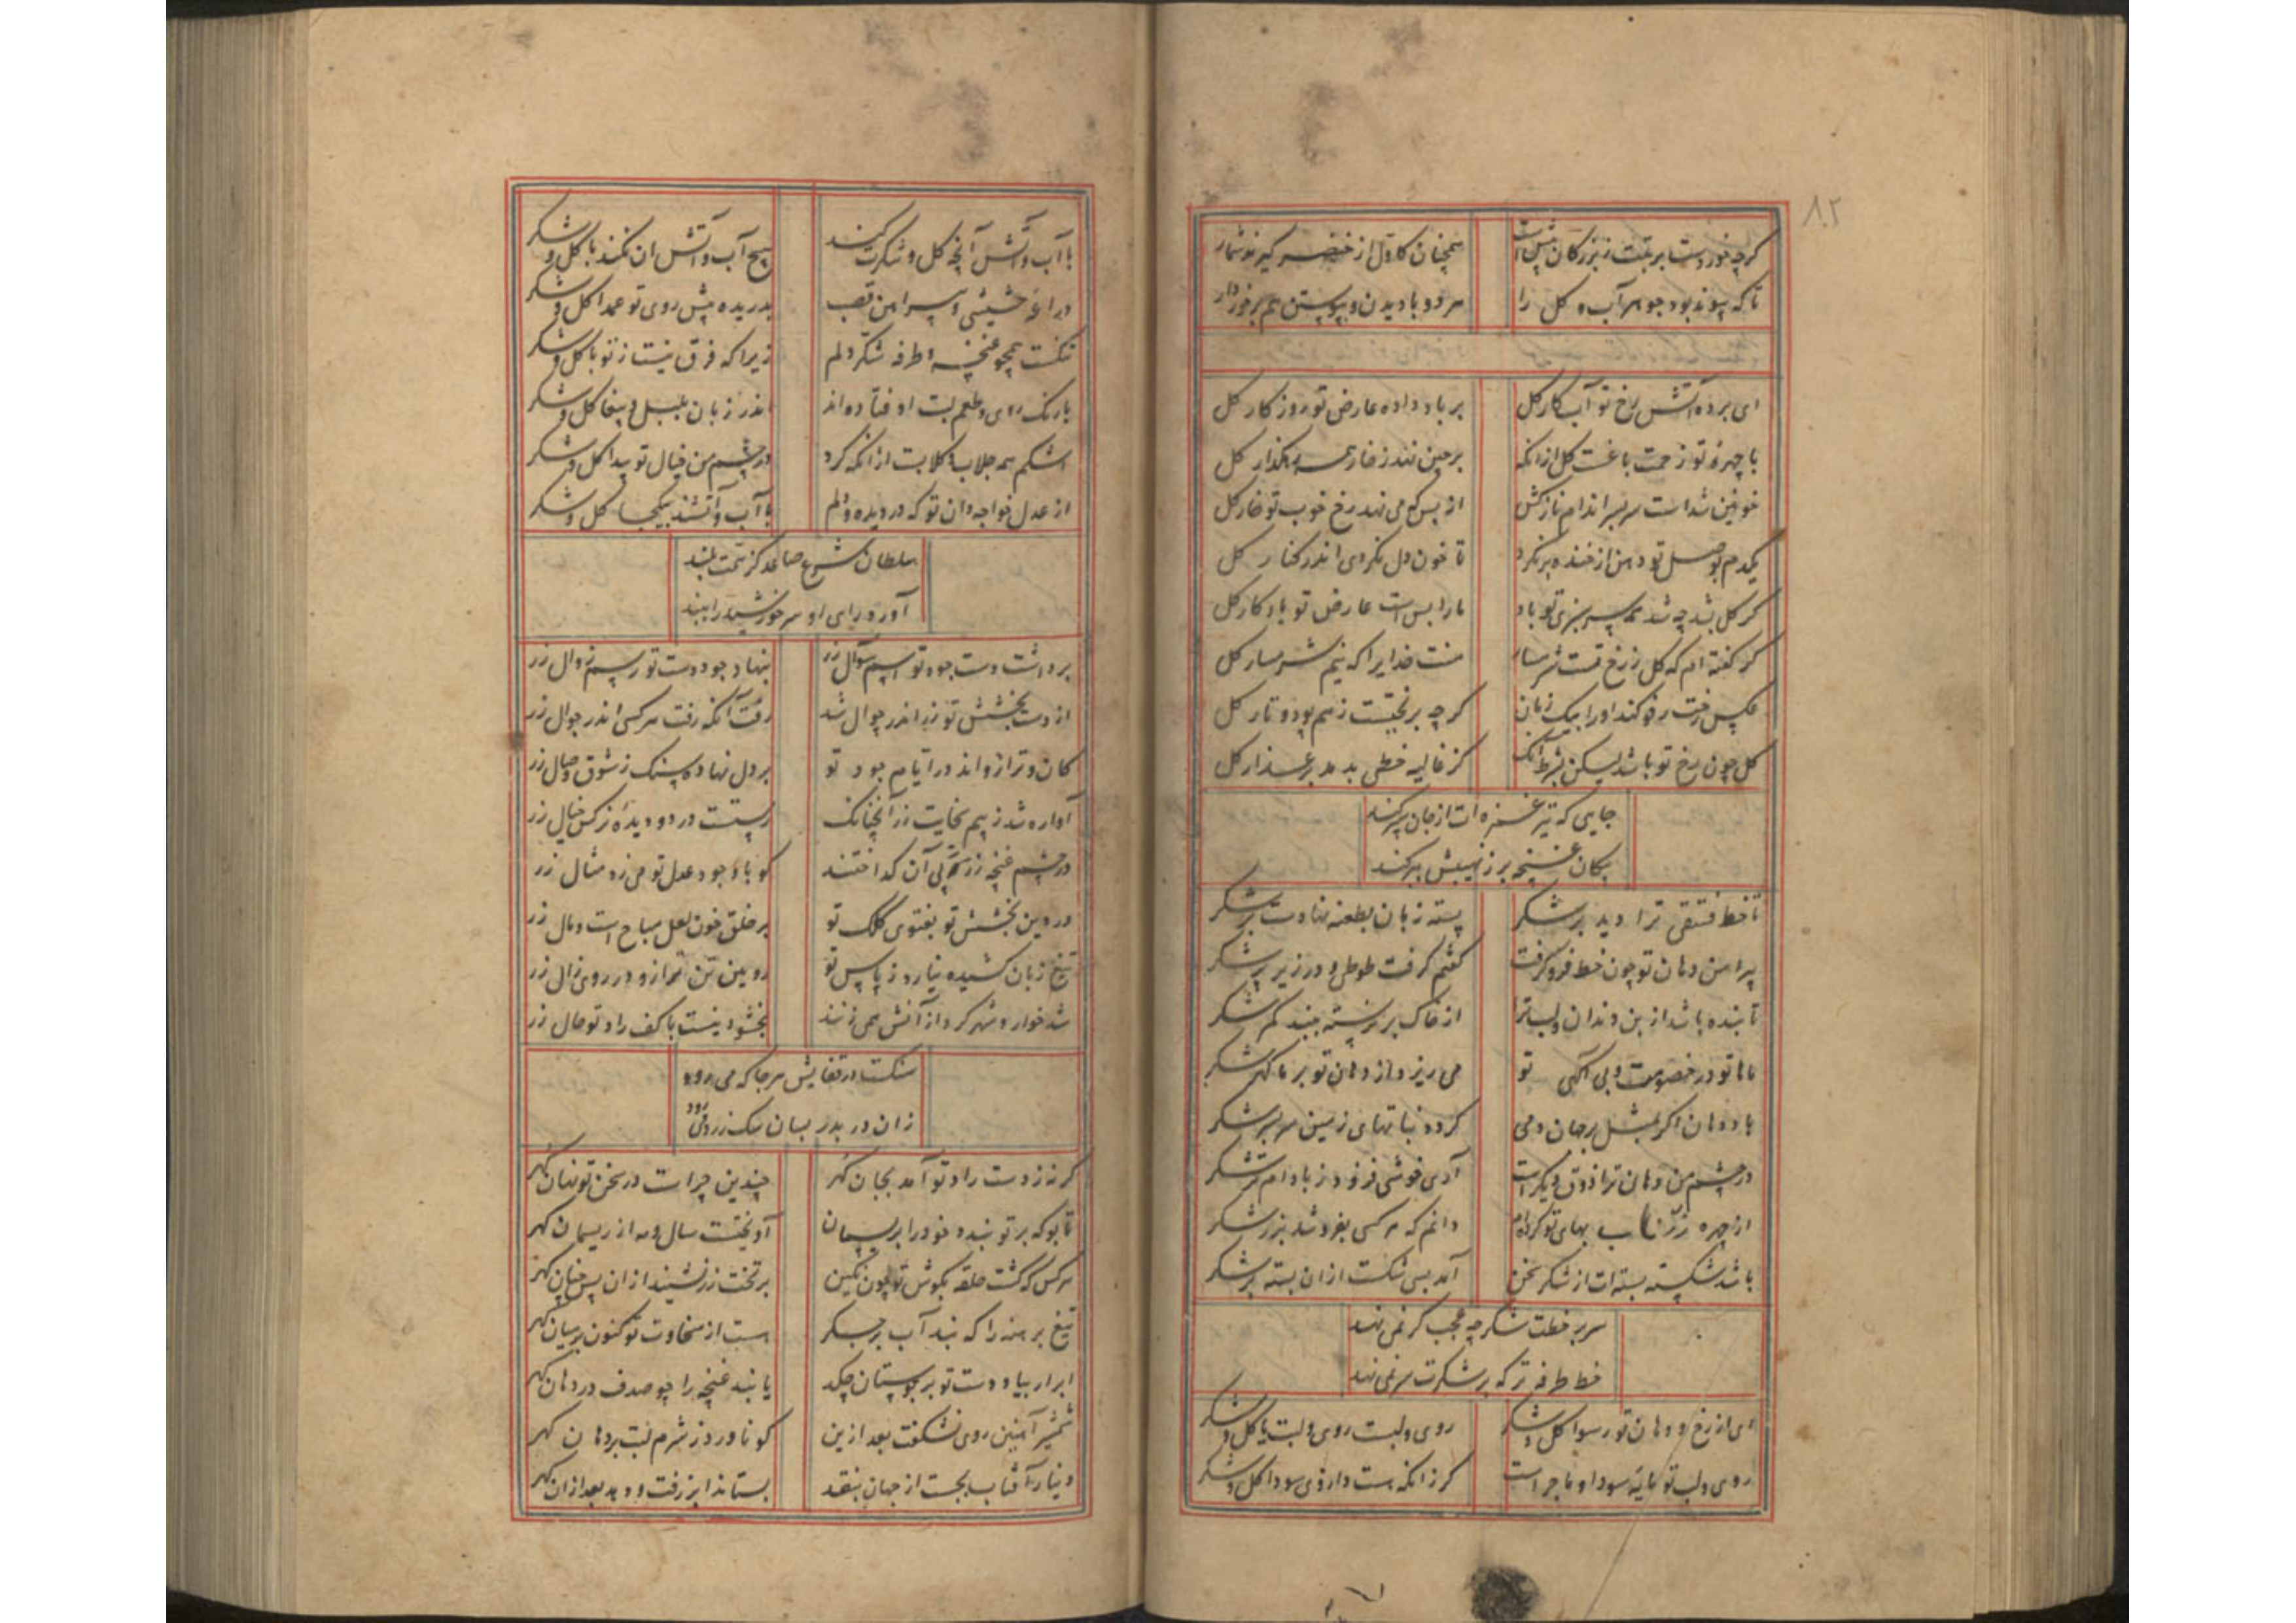 ۸۲
گرچه خوردست برتبت ز بزرگان پیش است
همچنان کاول از خنصر گیرند شمار
تا که پیوند بود جوهر آب و گل را
هر دو با دیدن و پیوستن هم برخوردار
ای برده آتش رخ تو آب کار گل
بر باد داده عارض تو روزگار گل
با چهره تو زحمت باغست گل ازانکه
برچین نهد ز خار همه رهگذار گل
خونین شداست سربسر اندام نازکش
از بس که می نهد رخ خوب تو خار گل
یکدم بوصل تو دهن از خنده بر نکرد
تا خون دل نکردی اندر کنار گل
گر گل بشد چه شد همه سرسبزی تو باد
ما را بس است عارض تو یادگار گل
گر گفته ام که گل ز رخ تست شرمسار
منت خدایرا که نیم شرمسار گل
عکس رخت رفو کند او را بیک زمان
گرچه بریختست ز هم پود و تار گل
گل چون رخ تو باشد لیکن بشرط آنک
کز غالیه خطی بدمد بر عذار گل
جایی که تیر غمزه ات از جان سپر کند
پیکان غنچه بر ز نهیبش سپر کند
تا خط فستقی ترا دید بر شکر
پسته زبان بطعنه نهادست بر شکر
پیرامن دهان تو چون خط فرو گرفت
گفتم گرفت طوطی در زیر پر شکر
تابنده باشد از بن دندان و لب ترا
از خاک بر نرسته ببندد کمر شکر
با ما تو در خصومت و بی آگهی تو
می ریزد از دهان تو بر ما گهر شکر
باد دهان اگر بمثل بر جهان دمی
گردد نباتهای زمین سربسر شکر
در چشم من دهان ترا ذوق دیگر است
آری خوشی فزود ز بادام تر شکر
از چهره زر ناب بهای تو کرده ام
دانم که هر کسی بفروشد بزر شکر
باشد شکسته بسته ات از شکر سخن
آمد بسی شکست ازان بسته بر شکر
سر بر خطت شکر چه عجب گر نمی نهد
خط طرفه تر که بر شکرت سر نمی نهد
ای از رخ و دهان تو رسوا گل و شکر
روی و لبت روی و لبت یا گل و شکر
روی و لب تو مایه سودا و ماجراست
گرزانکه هست داروی سودا گل و شکر
با آب و آتش آنچه گل و شکرت کند
هیچ آب و آتش آن نکند با گل و شکر
دراعه حشیشی و پیراهن قصب
بدریده پیش روی تو عمدا گل و شکر
تنگست همچو غنچه و طرفه شکر دلم
زیرا که فرق نیست ز تو با گل و شکر
با رنگ روی و طعم لبت اوفتاده اند
اندر زبان بلبل و ببغا گل و شکر
اشکم همه جلاب و گلابت ازانکه کرد
در چشم من خیال تو پیدا گل و شکر
از عدل خواجه دان تو که در دیده و دلم
با آب و آتشند بیکجا گل و شکر
سلطان شرع صاعد کز همت بلند
آورد رای او سر خورشید را ببند
برداشت دست جود تو رسم سوال زر
بنهاد جود دست تو رسم زوال زر
از دست بخشش تو زر اندر جوال شد
رفت آنکه رفت هر کسی اندر جوال زر
کان و ترازو اند در ایام جود تو
بر دل نهاده سنگ ز شوق وصال زر
آواره شد ز بیم سخایت زر آنچنانک
رستست در دو دیده نرگس خیال زر
در چشم غنچه زر همه پی آن گداختند
کو با وجود عدل تو می زد مثال زر
در دین بخشش تو بفتوی کلک تو
بر خلق خون لعل مباح است و مال زر
تیغ زبان کشیده نیارد ز پاس تو
رویین تن ترازو در روی زال زر
شد خوار و شهر گرد ازآنش همی زنند
بخشود نیست با کف راد تو حال زر
سنگست در قفایش هر جا که می رود
زان در بدر بسان سگ زر همی رود
گر نه ز دست راد تو آمد بجان گهر
چندین چراست در سخن تو نهان گهر
تا بو که بر تو بندد خود را بریسمان
آویختست سال و مه از ریسمان گهر
هر کس که گشت حلقه بگوش تو چون نگین
بر تخت زر نشیند ازان پس چنان گهر
تیغ برهنه را که نبد آب بر جگر
هست از سخاوت تو کنون بر میان گهر
ابر ار بیاد دست تو بر بوستان چکد
یابند غنچه را چو صدف در دهان گهر
شمشیر آهنین روی نشکفت بعد ازین
کو ناورد ز شرم لبت بر دهان گهر
دینار آفتاب بجست از جهان بنقد
بستاند ابر زفت و دهد بعد ازان گهر